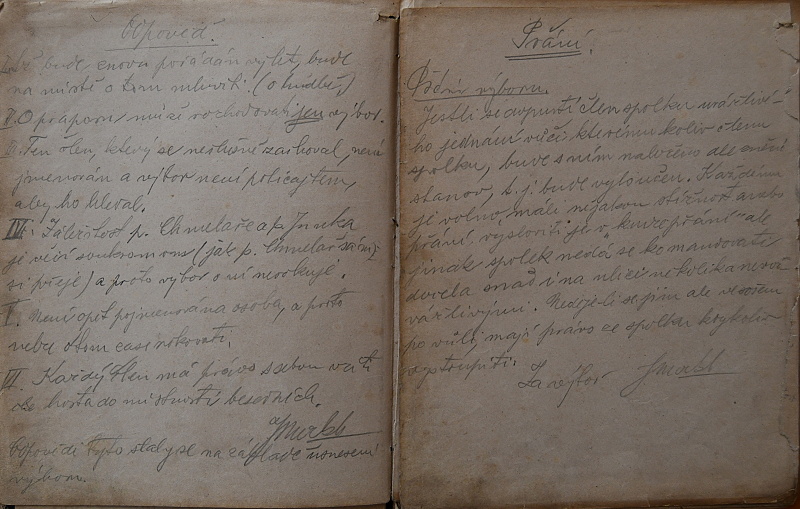 Odpověď.
I. Že bude znovu pořádán výlet, bude
na místě o tom mluviti. (o hudbě,)
II. O praporu může rozhodovati jen výbor.
III. Ten člen, který se neslušně zachoval, není
jmenován a výbor není policajtem,
aby ho hledal.
IV. Záležitost p. Chmelaře a p. Junka
je věcí soukromou (jak p. Chmelař sám
si přeje) a proto výbor o ní nerokuje.
V. Není opět pojmenována osoba, a proto
nebude o tom rokovati.
VI. Každý člen má právo s sebou vzíti
hosta do místností besedních.
Odpovědi tyto staly se na základě usnesení
výboru.
Přání.
Přání výboru.
Jestli se dopustí člen spolku urážlivé-
ho jednání vůči kterémukoliv členu
spolku, bude s ním naloženo dle znění
stanov, t. j. bude vyloučen. Každému
je volno, má-li nějakou stížnost anebo
přání, vysloviti je v "kuropřání" ale
jinak spolek nedá se komandovati
docela snad i na ulici několika
Neděje-li se jim ale ve všem
po vůli, mají právo ze spolku kdykoliv
vystoupiti.
Za výbor